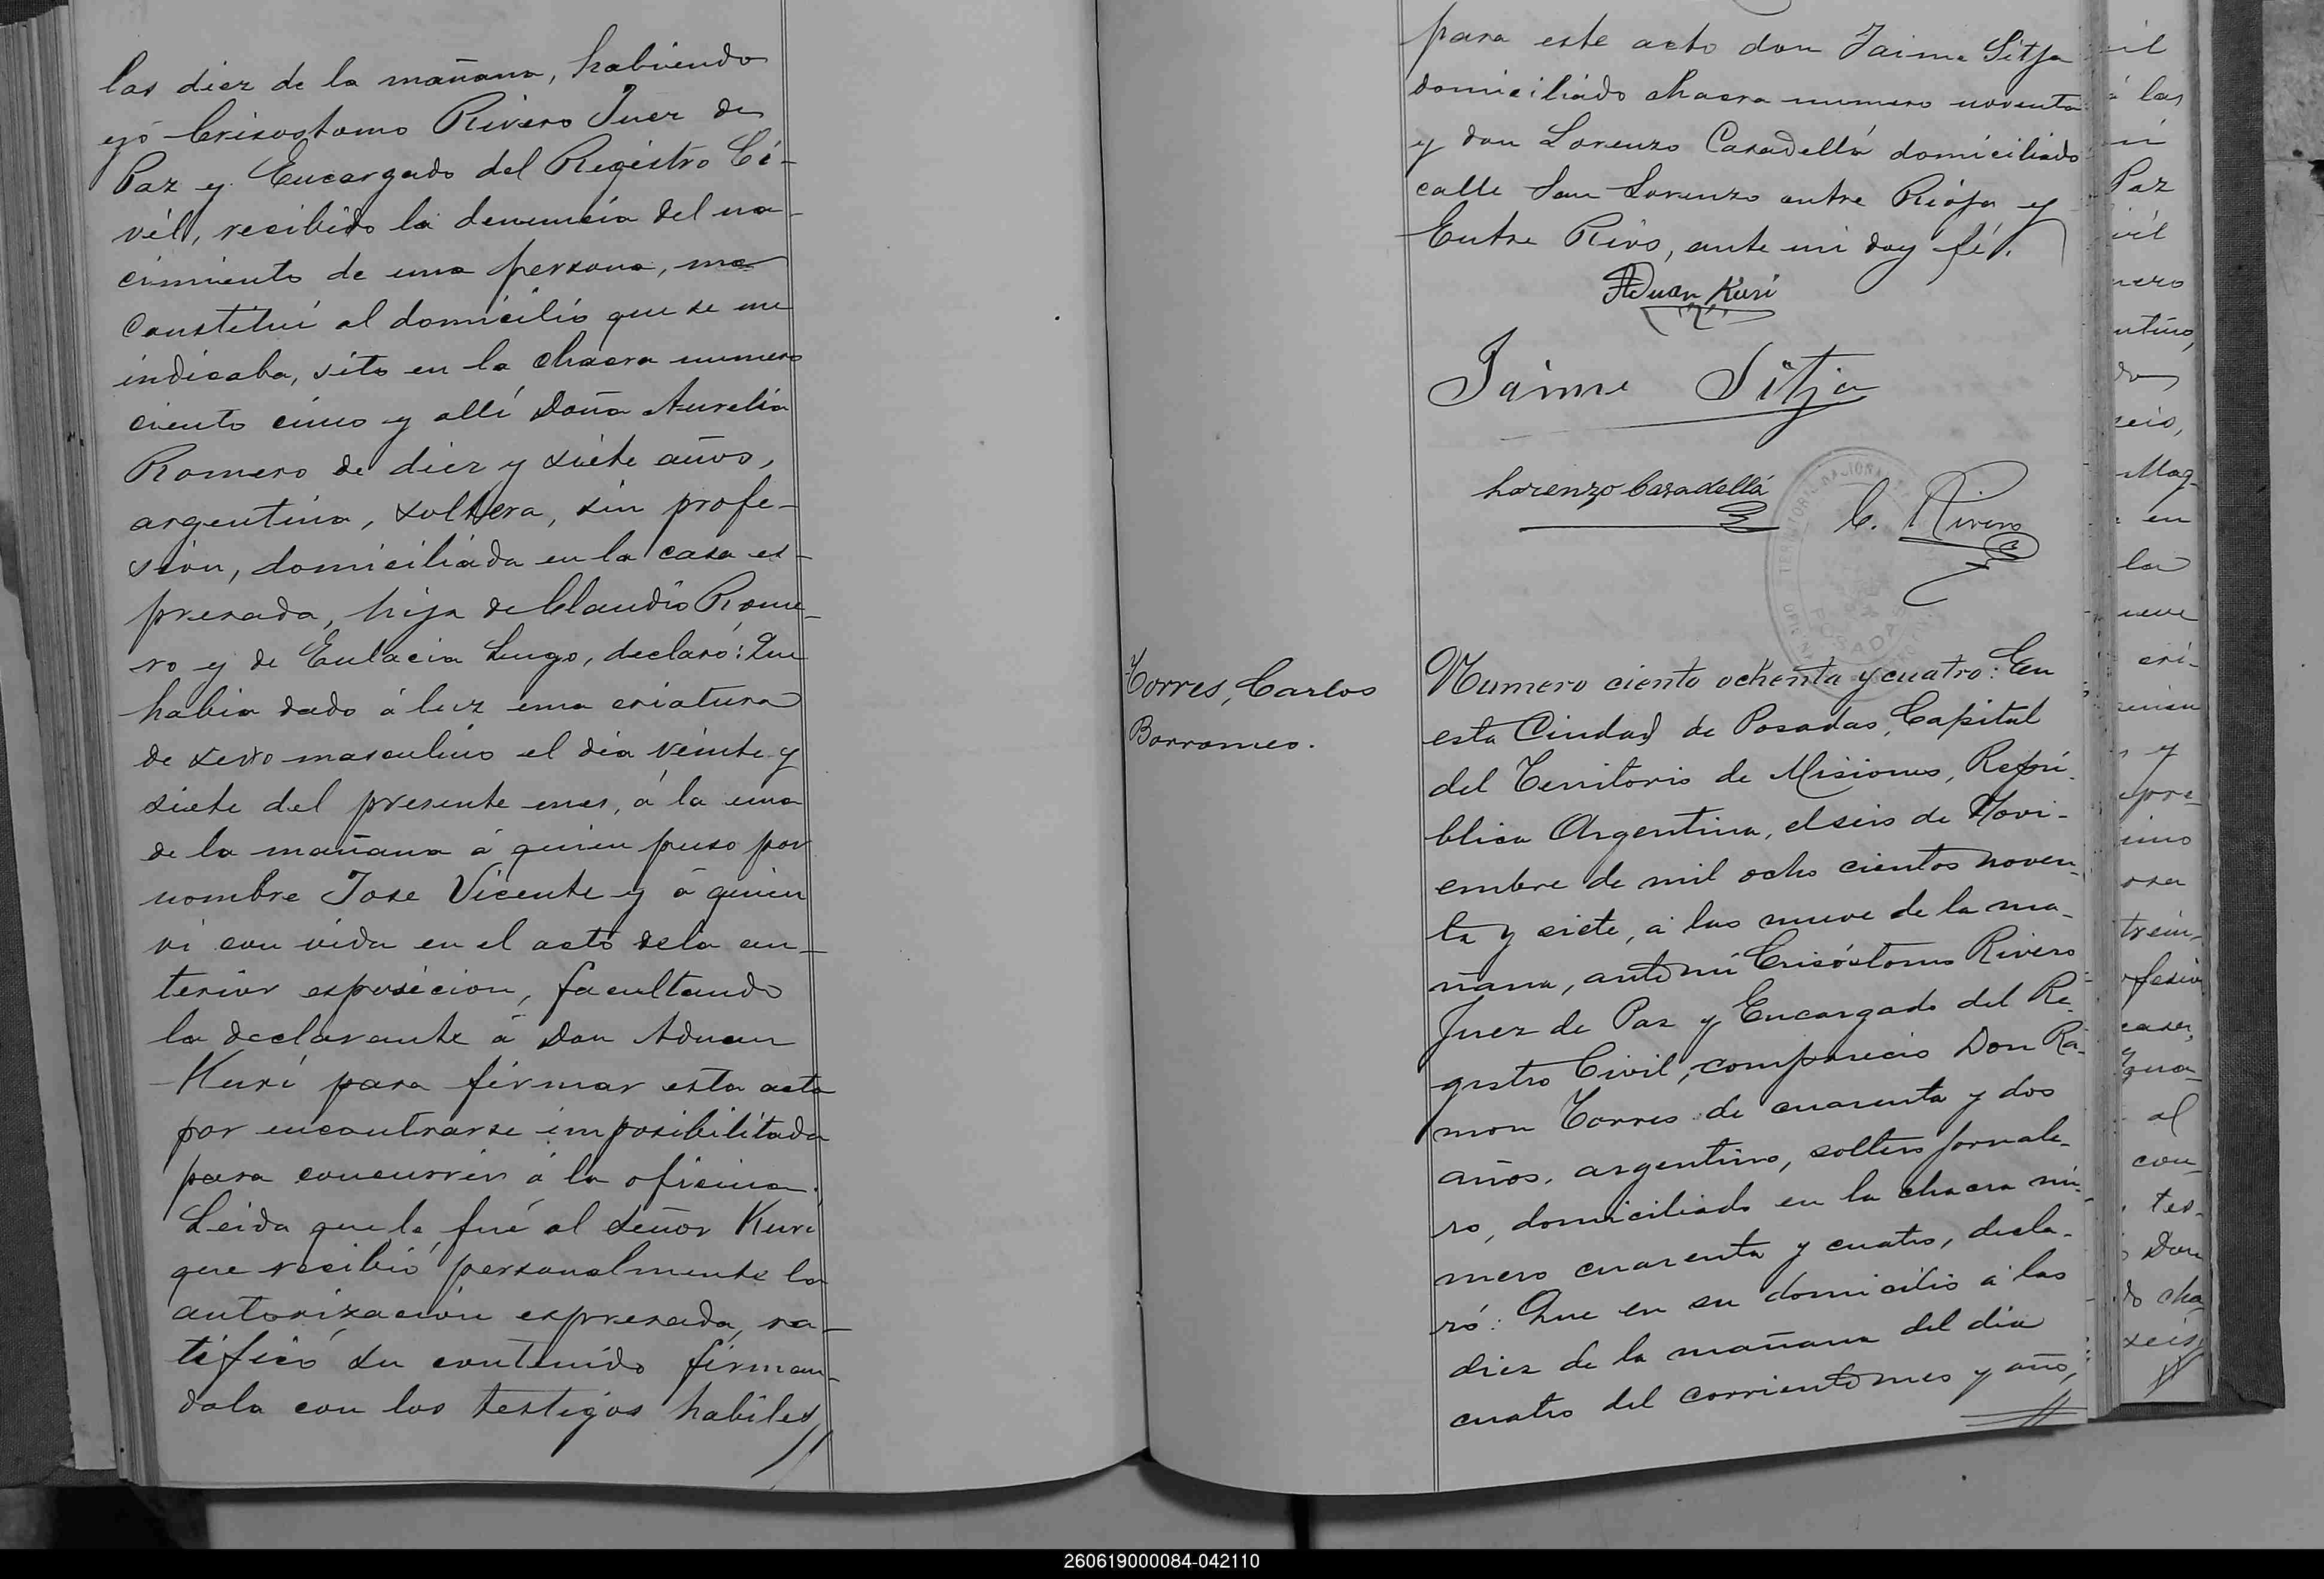 las diez de la mañana, habiendo
yó Crisostomo Rivero Juez de
Paz y Encargado del Registro Ci-
vil, recibido la denuncia del na-
cimiento de una persona, me
constituí al domicilio que se me
indicaba, sito en la chacra numero
ciento cinco y allí Doña Aurelia
Romero de diez y siete años,
argentina, soltera, sin profe-
sion, domiciliada en la casa es-
presada, hija de Claudio Rome-
ro y de Eulacia Lugo, declaró: Que
habia dado á luz una criatura
de sexo masculino el dia veinte y
siete del presente mes, á la una
de la mañana á quien puso por
nombre Jose Vicente y á quien
vi con vida en el acto de la an-
terior esposicion, facultando
la declarante á Don Aduan
Kuri para firmar esta acta
por encontrarse imposibilitada
para concurrir á la oficina.
Leida que le fué al señor Kuri
que recibió personalmente la
autorización espresada, ra-
tificó su contenido firman-
dola con los testigos habiles
para este acto don Jaime Sitja
domiciliado chacra numero noventa
y don Lorenzo Casadellá domiciliado
calle San Lorenzo entre Rioja y
Entre Rios, ante mi doy fé.
Aduan Kuri
Jaime Sitja
Lorenzo Casadellá
C. Rivero
POSADAS
Torres, Carlos
Borromeo.
Numero ciento ochenta y cuatro: En
esta Ciudad de Posadas, Capital
del Territorio de Misiones, Repú-
blica Argentina, el seis de Novi-
embre de mil ocho cientos noven-
ta y siete, á las nueve de la ma-
ñana, ante mi Crisóstomo Rivero
Juez de Paz y Encargado del Re-
gistro Civil, compareció Don Ra-
mon Torres de cuarenta y dos
años, argentino, soltero jornale-
ro, domiciliado en la chacra nú-
mero cuarenta y cuatro, decla-
ró: Que en su domicilio á las
diez de la mañana del dia
cuatro del corriente mes y año,
260619000084-042110